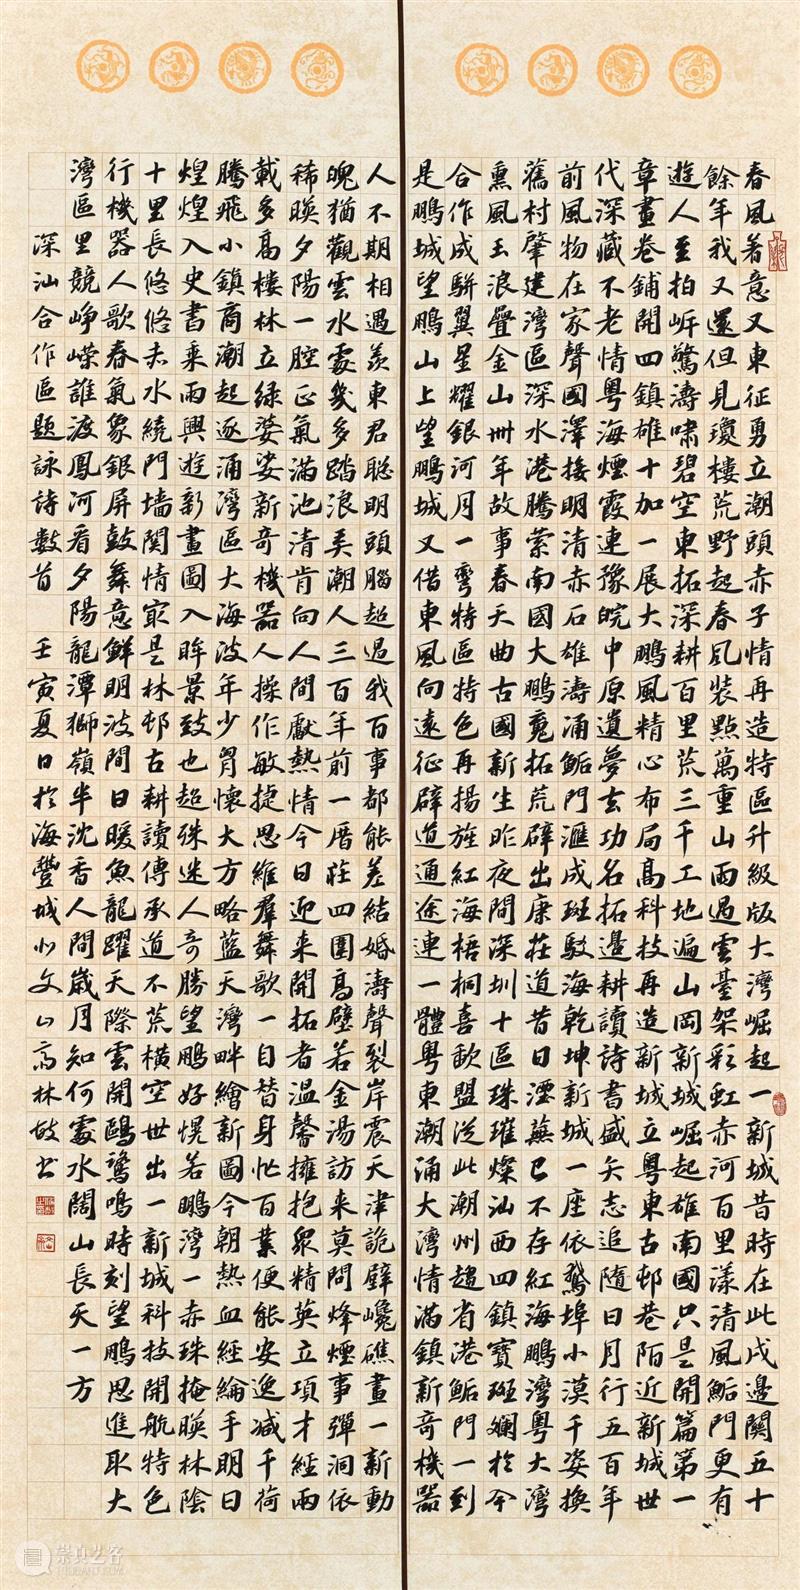 春風著意又東征勇立潮頭赤子情再造特區升級版大灣崛起一新城昔時在此戍邊關五十
餘年我又還但見瓊樓荒野起春風裝點萬重山雨過雲臺架彩虹赤河百里漾清風鮜門更有
遊人至拍岍驚濤嘯碧空東拓深耕百里荒三千工地遍山岡新城崛起雄南國只是開篇第一
章畫卷鋪開四鎮雄十加一展大鵬風精心布局高科技再造新城立粵東古邨巷陌近新城世
代深藏不老情粵海煙霞連豫皖中原遺夢去功名拓邊耕讀詩書盛矢志追隨日月行五百年
前風物在家聲國澤接明清赤石雄濤涌鮜門滙成斑駁海乾坤新城一座依鵞埠小漠千姿換
舊村肇建灣區深水港騰縈南國大鵬拓荒辟出康莊道昔日湮蕪已不存紅海鵬灣粵大灣
熏風玉浪疊金山卌年故事春天曲古國新生昨夜間深圳十區珠璀燦汕西四鎮寶斑斕於今
合作成駢翼星耀銀河月一彎特區特色再揚旌紅海梧桐喜歃盟從此潮州趨省港鮜門一到
是鵬城望鵬山上望鵬城又借東風向遠征辟道通途連一體粵東潮涌大灣情滿鎮新奇機器
人不期相遇羨東君聰明頭腦超過我百事都能差結婚濤聲裂岸震天津詭壁巉礁畫一新動
魄猶觀雲水處幾多踏浪弄潮人三百年前一厝莊四圍高壁若金湯訪来莫問烽煙事彈洞依
稀暎夕陽一腔正氣滿池清肯向人間獻熱情今日迎来開拓者溫馨擁抱眾精英立項才經兩
載多高樓林立綠婆娑新奇機器人操作敏捷思維羣舞歌一自替身忙百業便能安逸減千荷
騰飛小鎮商潮起逐涌灣區大海波年少胷懷大方略藍天灣畔繪新圖今朝熱血經綸手明日
煌煌入史書乘雨興遊新畫圖入眸景致也超殊迷人奇勝望鵬好愰若鵬灣一赤珠掩暎林陰
十里長悠悠赤水繞門墻関情最是林邨古耕讀傳承道不荒橫空世出一新城科技開航特色
行機器人歌春氣象銀屏鼓舞意鮮明波間日暖魚龍躍天際雲開鷗鷺鳴時刻望鵬思進取大
灣區里競崢嶸誰渡鳳河看夕陽龍潭獅嶺半沈香人間歲月知何處水闊山長天一方
深汕合作區題詠詩數首 壬寅夏日於海豐城北文山高林书
崇真艺客